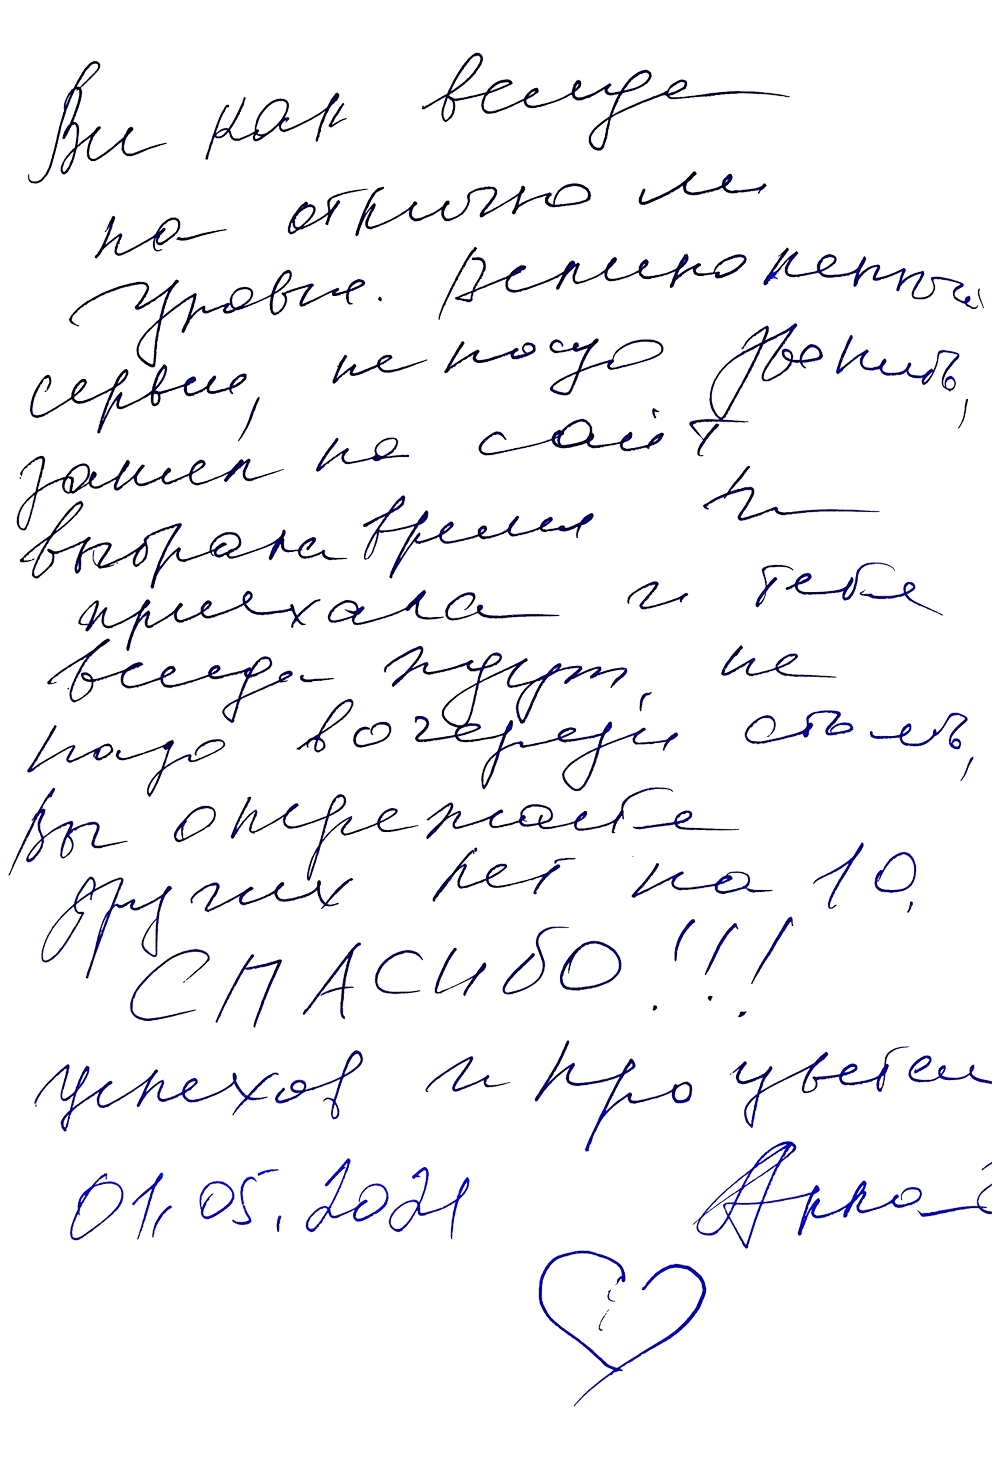 Вы как всегда
на отличном
уровне. Великолепный
сервис, не надо звонить,
зашел на сайт
выбрала время и
приехала и тебя
всегда ждут, не
надо в очереди стоять,
Вы опережаете
других лет на 10.
СПАСИБО!!!
успехов и процветан
01.05.2021